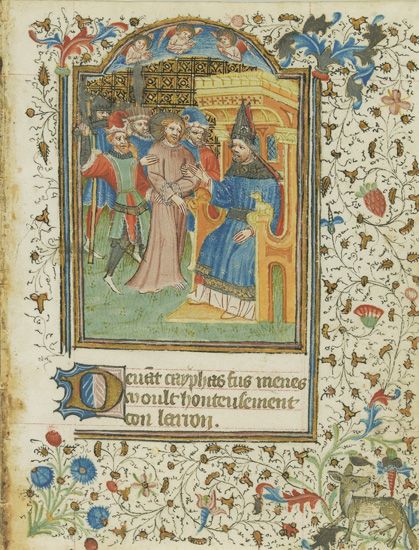 Deuāt cayphas fus menes
Moult honteusement
con larron.